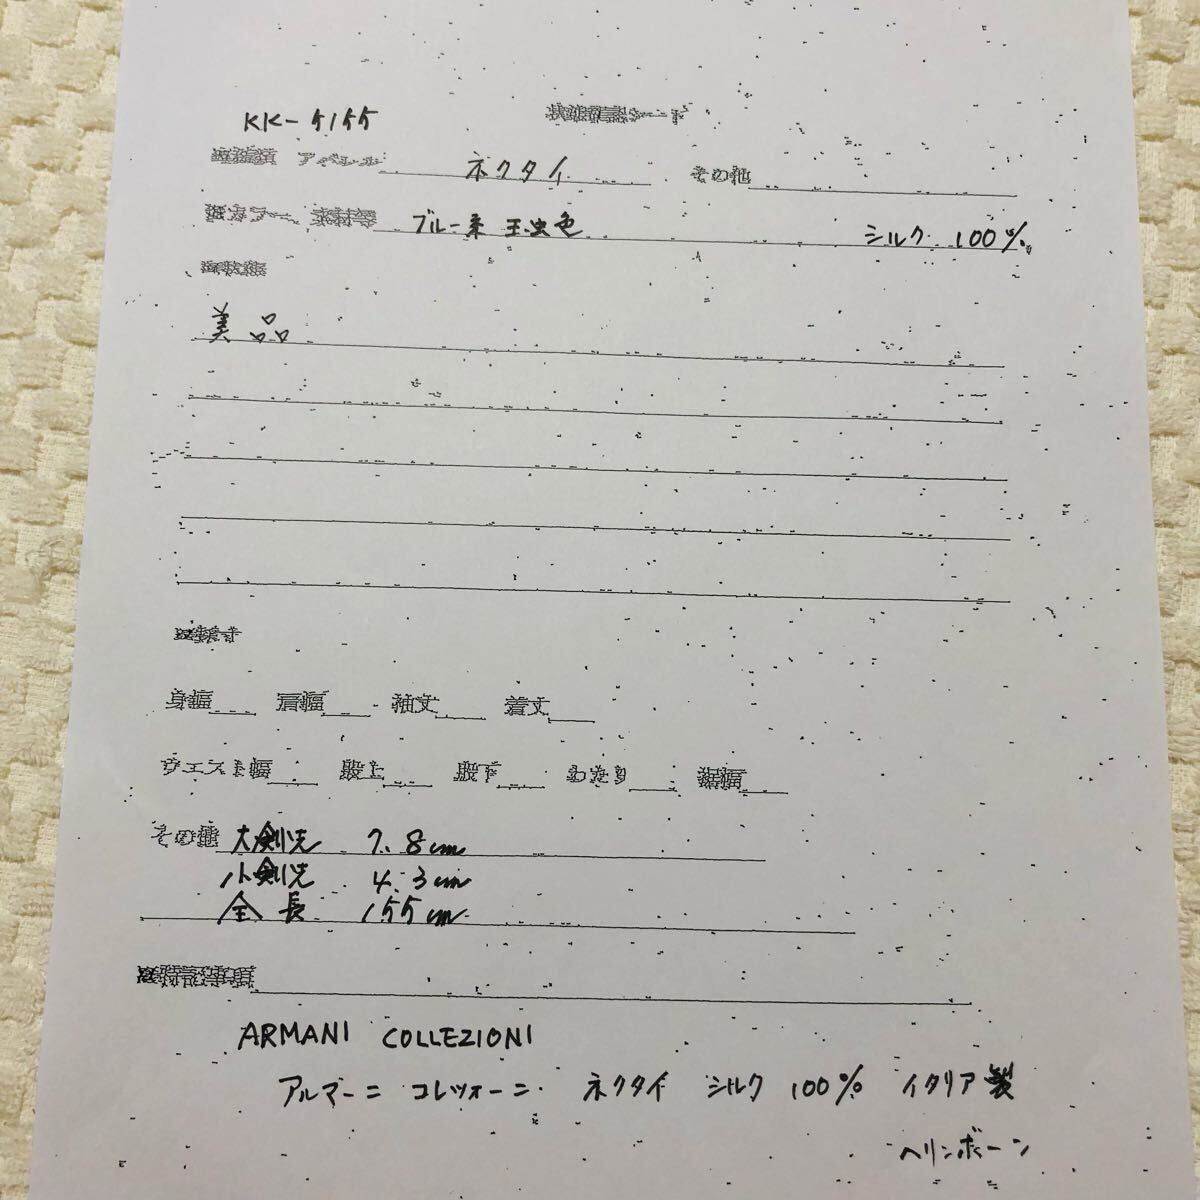 KK-5155
状態確認シート
アパレル ネクタイ その他
カラー、素材等 ブルー系 玉虫色 シルク 100%
美品
身幅 肩幅 袖丈 着丈
ウエスト幅 股上 股下 わたり 裾幅
その他 大剣先 7.8cm
小剣先 4.3cm
全長 155cm
※特記事項
ARMANI COLLEZIONI
アルマーニ コレツォーニ ネクタイ シルク 100% イタリア製
ヘリンボーン